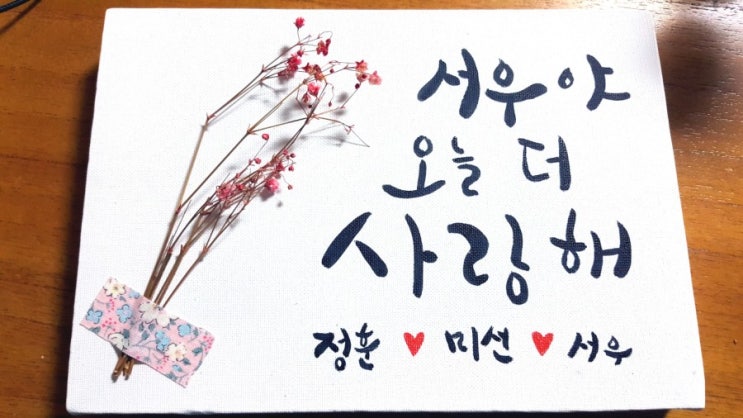 서우야
오늘 더
사랑해
정훈 ♥ 미선 ♥ 서우